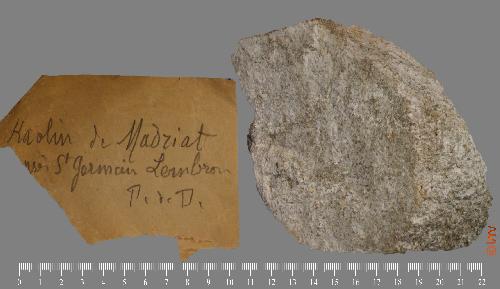 Kaolin de Madriat
près St Germain Lembron
P. de D.
0 1 2 3 4 5 6 7 8 9 10 11 12 13 14 15 16 17 18 19 20 21 22